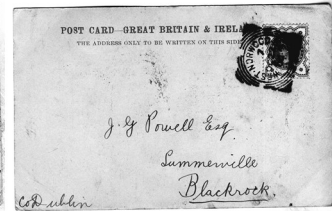 POST CARD—GREAT BRITAIN & IRELA
THE ADDRESS ONLY TO BE WRITTEN ON THIS SIDE
J. G Powell Esq
Summerville
Blackrock.
Co Dublin